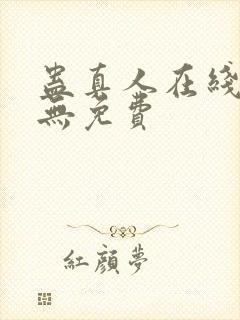 蠱真人在綫
無免費
紅顏夢